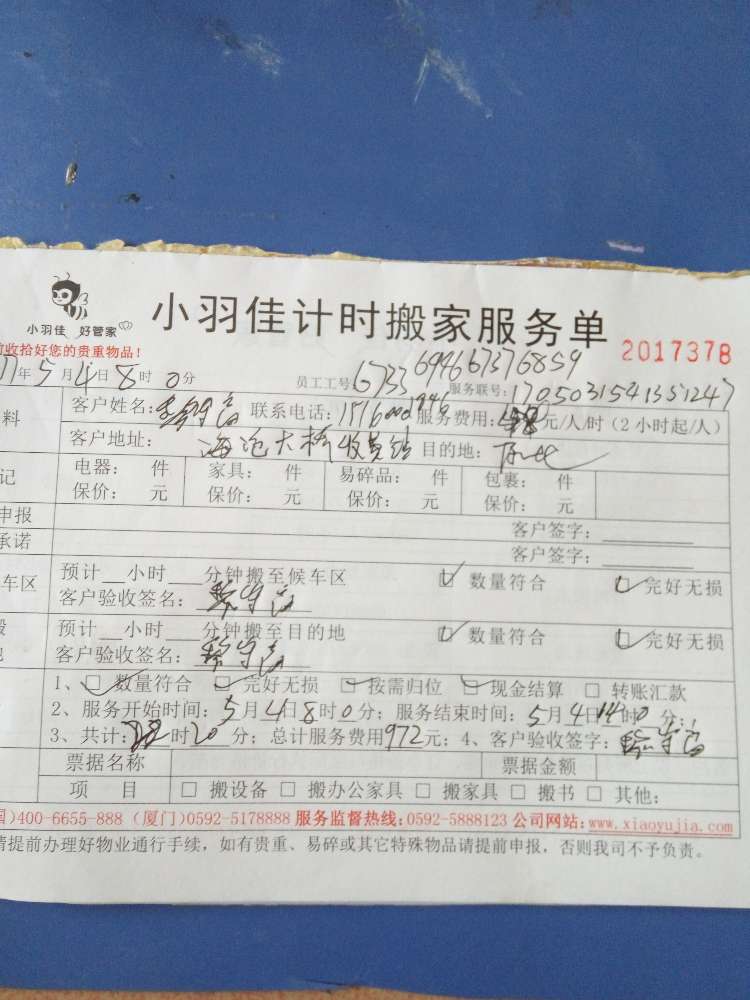 小羽佳 好管家
小羽佳计时搬家服务单
收拾好您的贵重物品!
2017378
年5月4日8时0分
员工工号 6733 6946 6737 6859
服务联号: 170503154135 1247
料
客户姓名: 联系电话: 服务费用: 元/人/时 (2小时起/人)
客户地址: 海沧大桥收费站 目的地:
记
电器: 件 家具: 件 易碎品: 件 包裹: 件
保价: 元 保价: 元 保价: 元 保价: 元
申报
客户签字:
承诺
客户签字:
车区
预计 小时 分钟搬至候车区 数量符合 完好无损
客户验收签名:
预计 小时 分钟搬至目的地 数量符合 完好无损
客户验收签名:
1、数量符合 完好无损 按需归位 现金结算 转账汇款
2、服务开始时间: 5月4日8时0分; 服务结束时间: 5月4日14时0分;
3、共计: 时20分; 总计服务费用972元; 4、客户验收签字:
票据名称 票据金额
项 目 搬设备 搬办公家具 搬家具 搬书 其他:
国)400-6655-888 (厦门)0592-5178888 服务监督热线:0592-5888123 公司网站:www.xiaoyujia.com
请提前办理好物业通行手续, 如有贵重、易碎或其它特殊物品请提前申报, 否则我司不予负责。